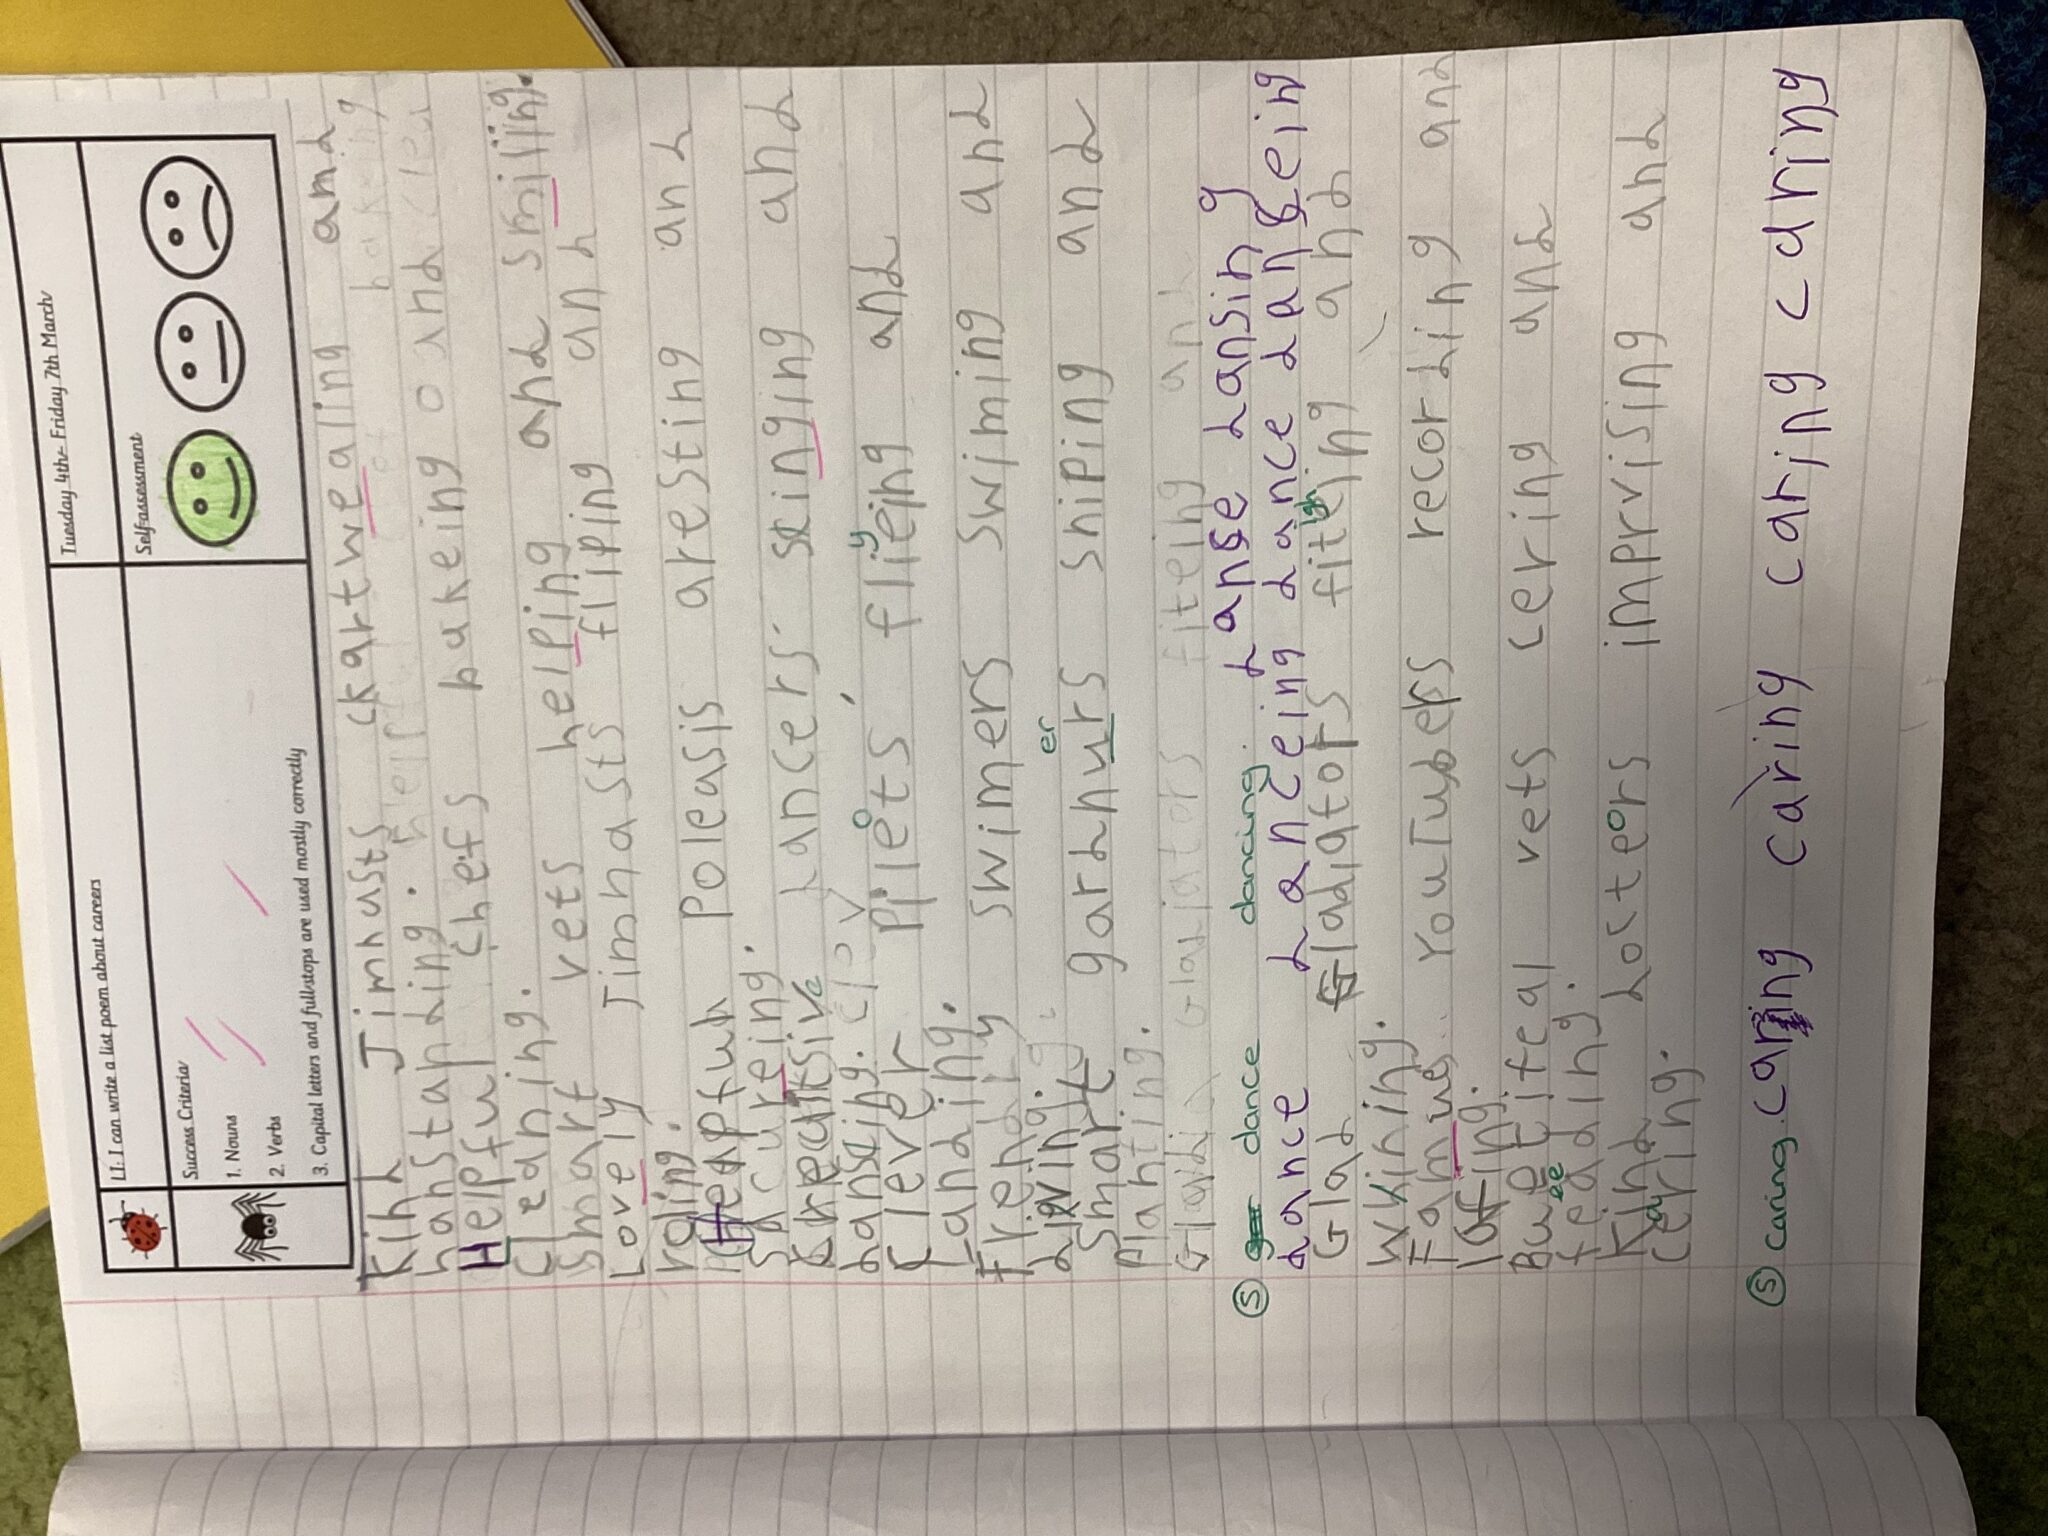 LI: I can write a list poem about careers
Tuesday 4th - Friday 7th March
Success Criteria
Self-assessment
1. Nouns
2. Verbs
3. Capital letters and full stops are used mostly correctly
Kind Jimnusts ckartwealing and
hanstanding.
Helpful chefs bakeing and
cleaning.
Smart vets helping and smiling.
Lovely Jimnasts fliping and
roling.
Helpful Poleasis aresting and
sacureing.
Kreatsive dancers singing and
dansing.
Clever Pilots flieing and
Landing.
Friendly swimers swiming and
diving.
Smart gardnurs sniping and
er
planting.
Gladiators fiteing and
dance dancing. danse dansing
dance danceing dance danceing
Glad Gladiators fiteing and
wining.
Famus YouTubers recording and
lafing.
Buetifeal vets cering and
feading.
ee
Kind docters imprvising and
cering.
caring. caring caring caring caring